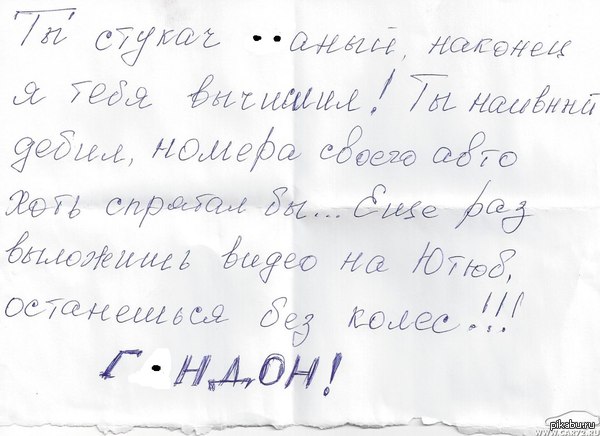 Ты стукач ••аный, наконец
я тебя вычислил! Ты наивный
дебил, номера своего авто
хоть спрятал бы... Еще раз
выложишь видео на Ютюб,
останешься без колес!!!
Г•НДОН!
pikabu.ru
WWW.CAR72.RU